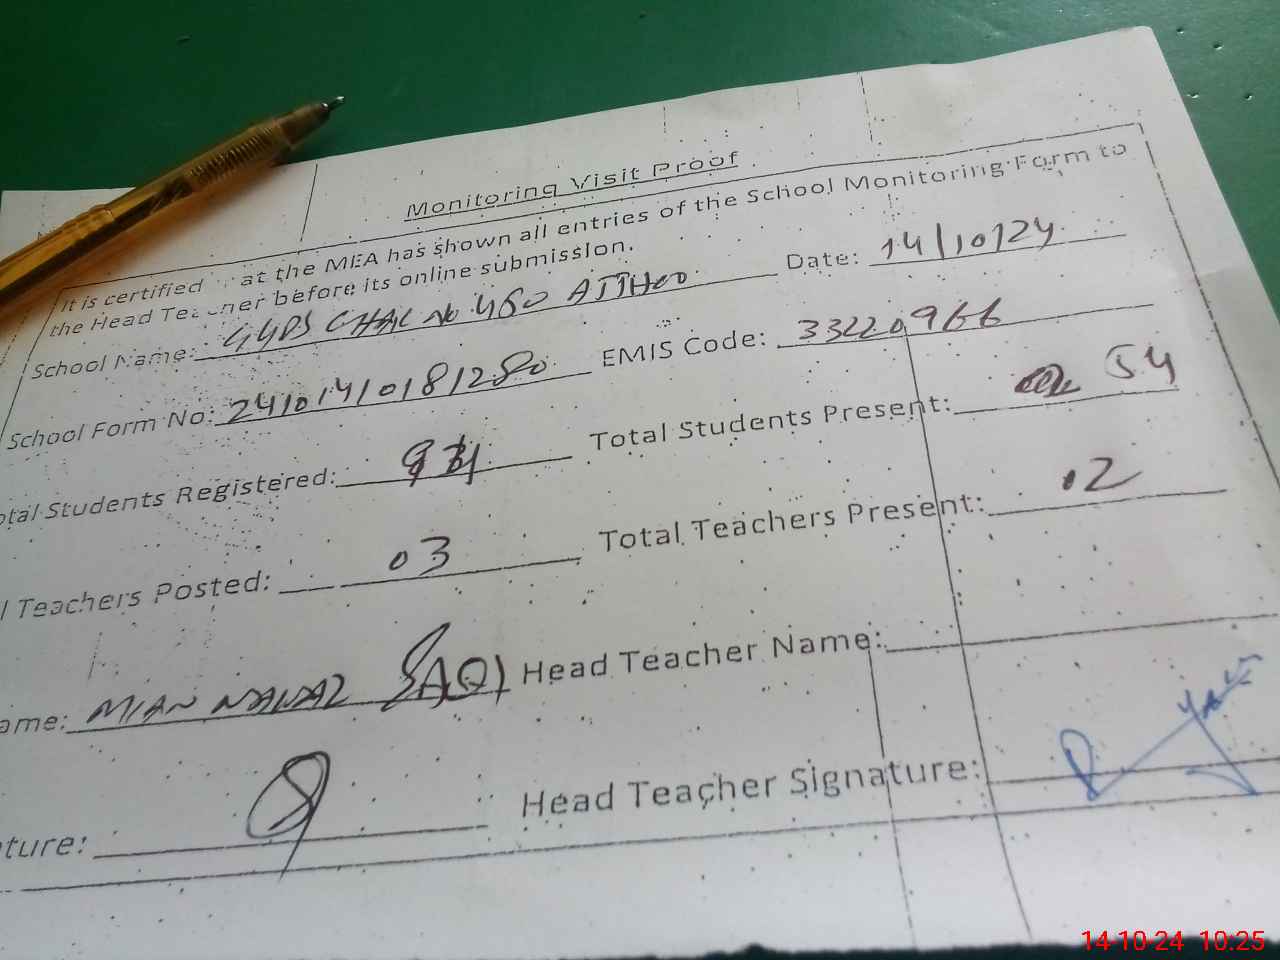 Monitoring Visit Proof
It is certified at the MEA has shown all entries of the School Monitoring Form to
the Head Teacher before its online submission.
School Name: GGPS CHAK No 460 ATTHOO Date: 14/10/24
School Form No: 24101410181280 EMIS Code: 33220966
otal Students Registered: Total Students Present: 54
l Teachers Posted: 03 Total Teachers Present: 02
ame: MIAN NAWAZ SAQI Head Teacher Name:
ture: Head Teacher Signature:
14-10-24 10:25